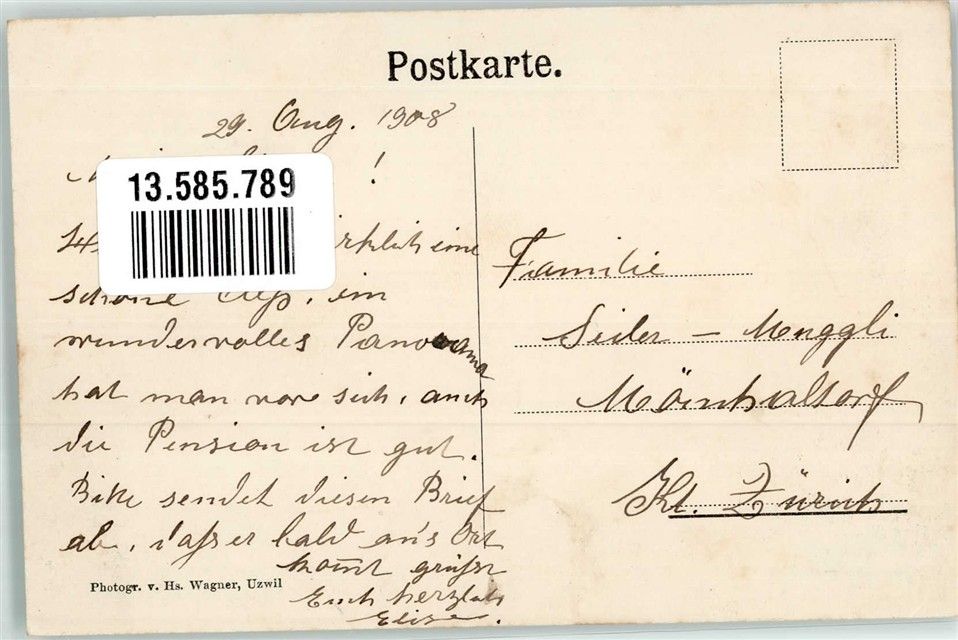 Postkarte.
29. Aug. 1908
!
13.585.789
eine
schöne Aussicht, ein
wundervolles Panorama
hat man vor sich, auch
die Pension ist gut.
Bitte sendet diesen Brief
ab, dass er bald an's Ort
kommt grüsst
Euch herzlich
Elise.
Familie
Seiler -
Mönchaltorf
Kt. Zürich
Photogr. v. Hs. Wagner, Uzwil